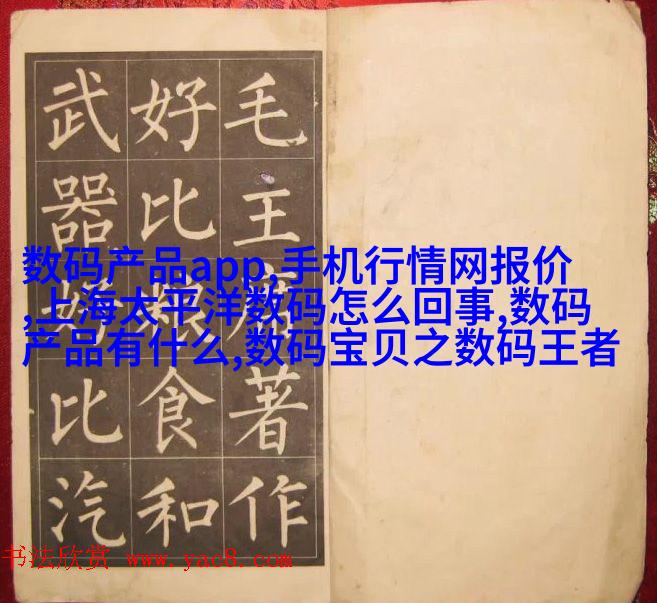 毛主席著作
好比粮食和
武器好比汽
数码产品app,手机行情网报价
,上海太平洋数码怎么回事,数码
产品有什么,数码宝贝之数码王者
书法欣赏 www.yac8.com